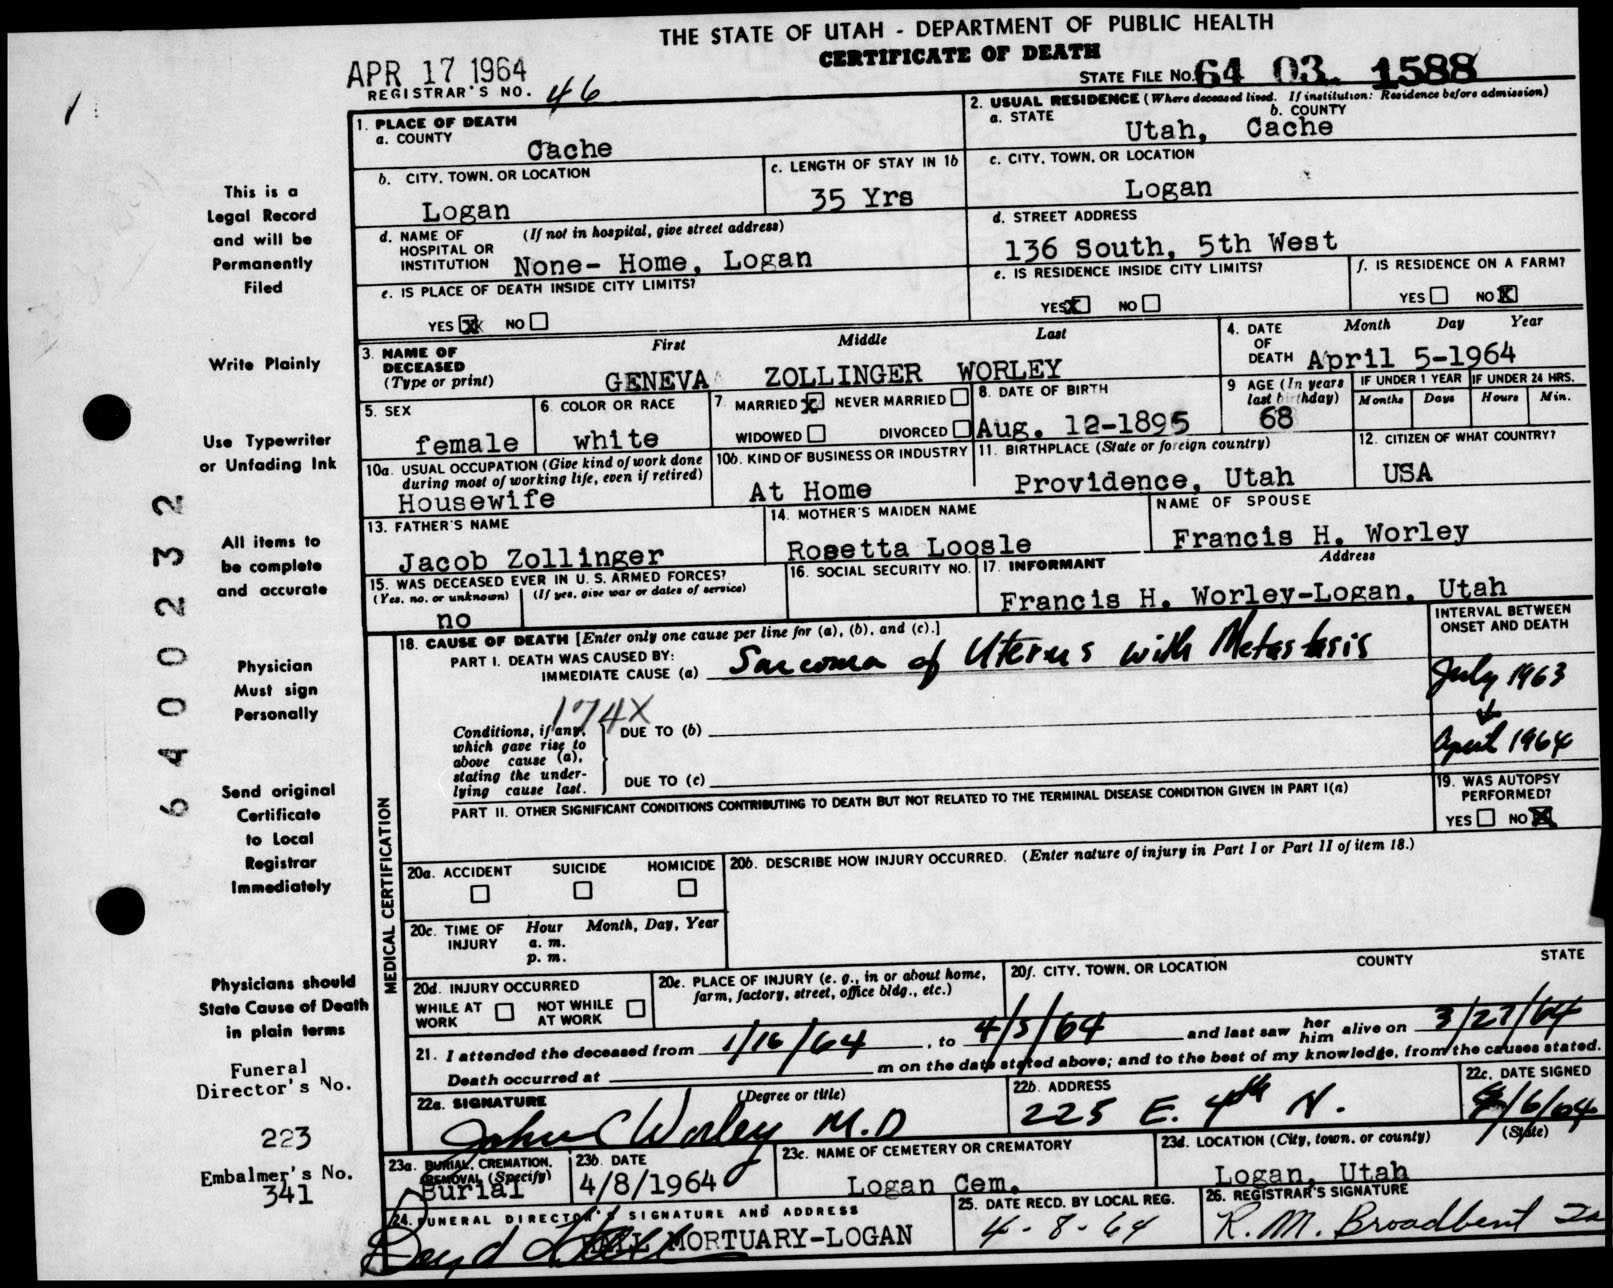 THE STATE OF UTAH - DEPARTMENT OF PUBLIC HEALTH
CERTIFICATE OF DEATH
APR 17 1964
REGISTRAR'S NO. 46
STATE FILE NO. 64 03 1588
1. PLACE OF DEATH
a. COUNTY
Cache
2. USUAL RESIDENCE (Where deceased lived. If institution: Residence before admission)
a. STATE b. COUNTY
Utah, Cache
b. CITY, TOWN, OR LOCATION
Logan
c. LENGTH OF STAY IN 1b
35 Yrs
c. CITY, TOWN, OR LOCATION
Logan
d. NAME OF HOSPITAL OR INSTITUTION (If not in hospital, give street address)
None- Home, Logan
d. STREET ADDRESS
136 South, 5th West
e. IS PLACE OF DEATH INSIDE CITY LIMITS?
YES X NO
e. IS RESIDENCE INSIDE CITY LIMITS?
YES X NO
f. IS RESIDENCE ON A FARM?
YES NO X
3. NAME OF DECEASED (Type or print)
First Middle Last
GENEVA ZOLLINGER WORLEY
4. DATE OF DEATH Month Day Year
April 5-1964
5. SEX
female
6. COLOR OR RACE
white
7. MARRIED X NEVER MARRIED
WIDOWED DIVORCED
8. DATE OF BIRTH
Aug. 12-1895
9 AGE (In years last birthday)
68
IF UNDER 1 YEAR IF UNDER 24 HRS.
Months Days Hours Min.
10a. USUAL OCCUPATION (Give kind of work done during most of working life, even if retired)
Housewife
10b. KIND OF BUSINESS OR INDUSTRY
At Home
11. BIRTHPLACE (State or foreign country)
Providence, Utah
12. CITIZEN OF WHAT COUNTRY?
USA
13. FATHER'S NAME
Jacob Zollinger
14. MOTHER'S MAIDEN NAME
Rosetta Loosle
NAME OF SPOUSE
Francis H. Worley
15. WAS DECEASED EVER IN U. S. ARMED FORCES?
(Yes, no, or unknown) (If yes, give war or dates of service)
no
16. SOCIAL SECURITY NO.
17. INFORMANT Address
Francis H. Worley-Logan, Utah
MEDICAL CERTIFICATION
18. CAUSE OF DEATH [Enter only one cause per line for (a), (b), and (c).]
PART I. DEATH WAS CAUSED BY:
IMMEDIATE CAUSE (a) Sarcoma of Uterus with Metastasis
INTERVAL BETWEEN ONSET AND DEATH
July 1963
April 1964
174X
Conditions, if any, which gave rise to above cause (a), stating the underlying cause last.
DUE TO (b)
DUE TO (c)
PART II. OTHER SIGNIFICANT CONDITIONS CONTRIBUTING TO DEATH BUT NOT RELATED TO THE TERMINAL DISEASE CONDITION GIVEN IN PART I(a)
19. WAS AUTOPSY PERFORMED?
YES NO X
20a. ACCIDENT SUICIDE HOMICIDE
20b. DESCRIBE HOW INJURY OCCURRED. (Enter nature of injury in Part I or Part II of item 18.)
20c. TIME OF INJURY Hour Month, Day, Year
a. m.
p. m.
20d. INJURY OCCURRED
WHILE AT WORK NOT WHILE AT WORK
20e. PLACE OF INJURY (e. g., in or about home, farm, factory, street, office bldg., etc.)
20f. CITY, TOWN, OR LOCATION COUNTY STATE
21. I attended the deceased from 1/16/64, to 4/5/64 and last saw her him alive on 3/27/64
Death occurred at m on the date stated above; and to the best of my knowledge, from the causes stated.
22a. SIGNATURE (Degree or title)
John C Worley M.D
22b. ADDRESS
225 E. 4th N.
22c. DATE SIGNED
4/6/64
23a. BURIAL, CREMATION, REMOVAL (Specify)
Burial
23b. DATE
4/8/1964
23c. NAME OF CEMETERY OR CREMATORY
Logan Cem.
23d. LOCATION (City, town, or county) (State)
Logan, Utah
24. FUNERAL DIRECTOR'S SIGNATURE AND ADDRESS
HALL MORTUARY-LOGAN
25. DATE RECD. BY LOCAL REG.
4-8-64
26. REGISTRAR'S SIGNATURE
R. M. Broadbent
This is a
Legal Record
and will be
Permanently
Filed
Write Plainly
Use Typewriter
or Unfading Ink
All items to
be complete
and accurate
Physician
Must sign
Personally
Send original
Certificate
to Local
Registrar
Immediately
Physicians should
State Cause of Death
in plain terms
Funeral
Director's No.
223
Embalmer's No.
341
6400232